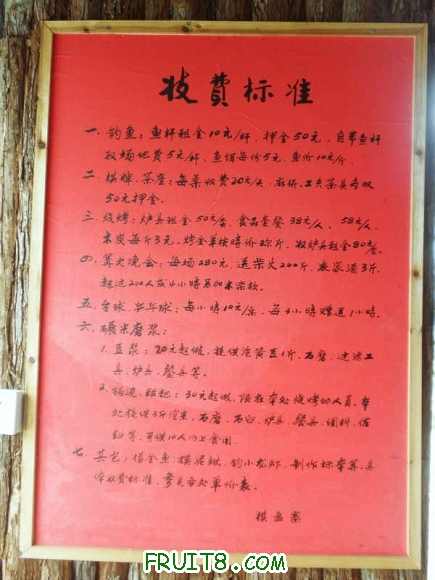 收費标准
一. 钓鱼: 鱼杆租金10元/杆, 押金50元, 自带鱼杆
收场地费5元/杆, 鱼饵每份5元, 鱼价10元/斤.
二. 棋牌. 茶座: 每桌收费20元/天, 麻将、工夫茶具各收
50元押金.
三. 烧烤: 炉具租金50元/套, 食品套餐38元/人, 58元/人,
木炭每斤3元, 烤全羊按時价称斤, 收炉具租金80元/套
四. 篝火晚会: 每场280元, 送柴火200斤, 农家酒3斤,
超过200人或4小時
五. 台球. 乒乓球: 每小時10元/台, 每4小時赠送1小時.
六. 碾米磨浆:
1. 豆浆: 20元起做, 提供淮黄豆1斤, 石磨, 过滤工
具, 炉具, 餐具等.
2. 30元起做,
提供3斤糯米, 石磨, 石臼, 炉具, 餐具, 调料,
等, 可供10人以上食用.
七. 其它: 捞金鱼, 摸泥鳅, 钓小龙虾, 制作标本等, 具
体收费标准, 参见各处单价表.
FRUIT8.COM